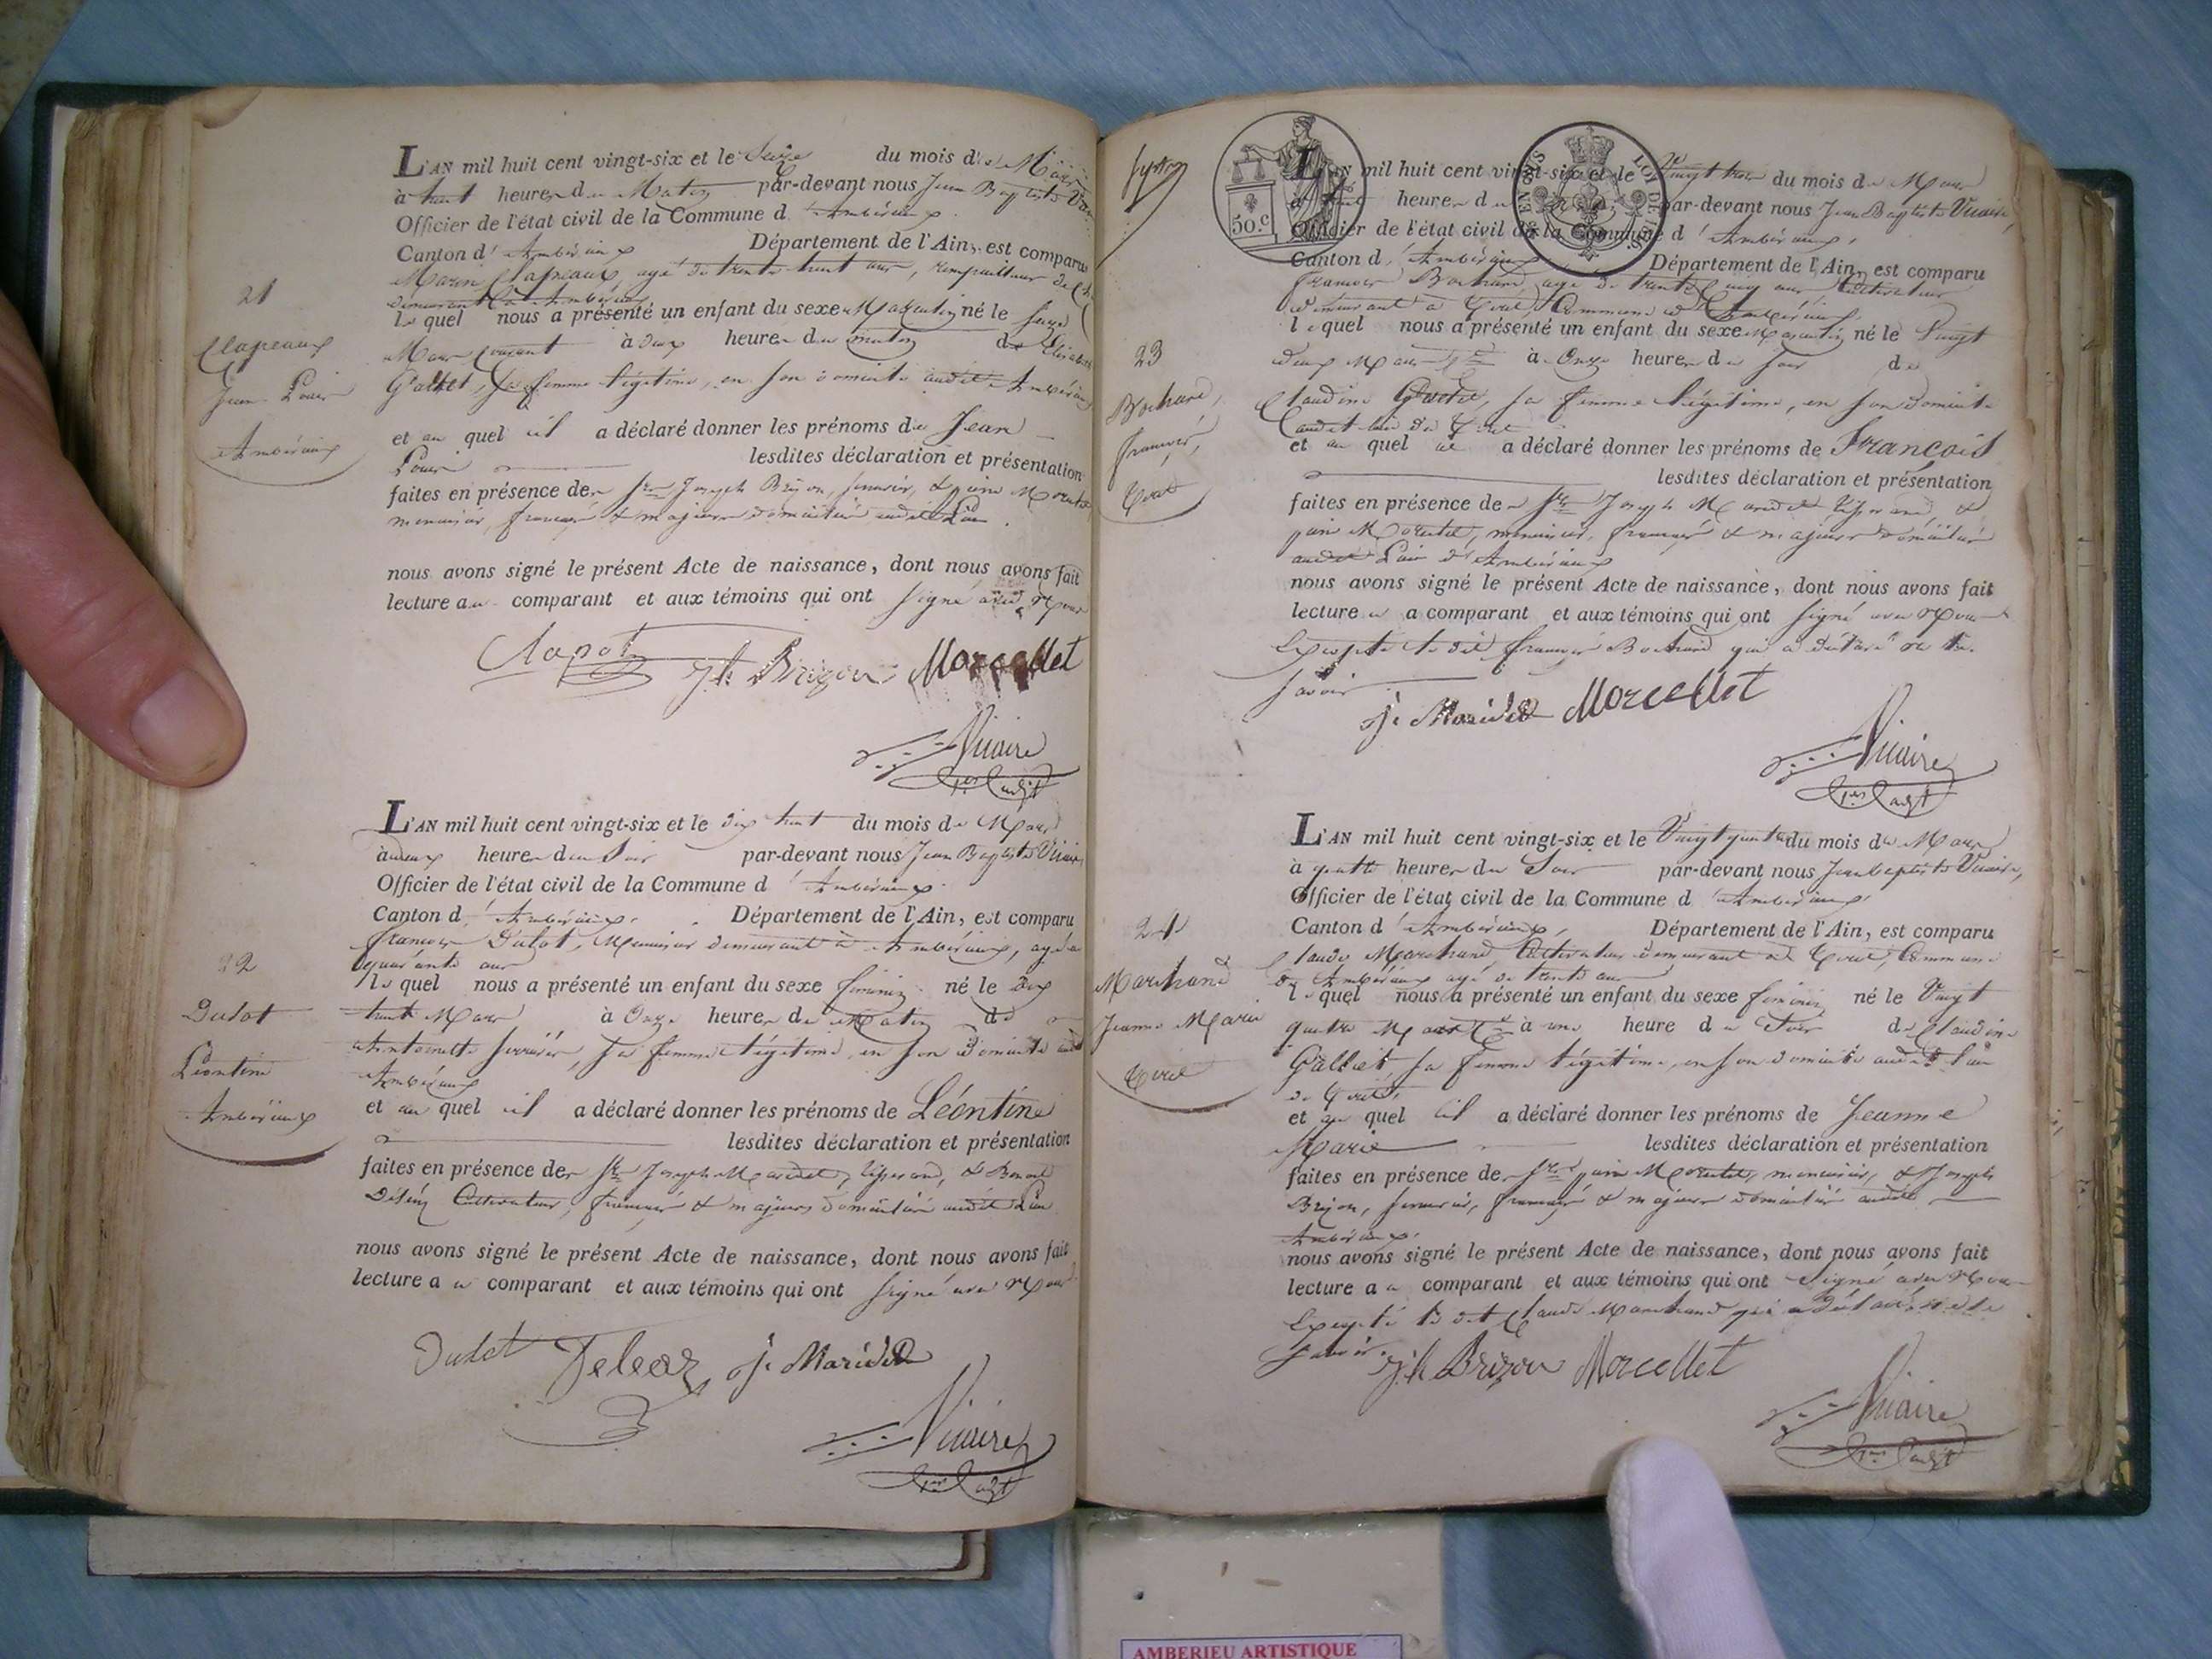 L'AN mil huit cent vingt-six et le Seize du mois de Mars
à huit heures du Matin par-devant nous Jean Baptiste
Officier de l'état civil de la Commune d'Ambérieux
Canton d'Ambérieux Département de l'Ain, est comparu
Marin Clapeaux, agé de trente huit ans,
demeurant à Ambérieux
le quel nous a présenté un enfant du sexe Masculin né le Seize
Mars courant à deux heures du matin de
Gallet, sa femme légitime, en son domicile audit Ambérieux
et au quel il a déclaré donner les prénoms de Jean
Louis lesdites déclaration et présentation
faites en présence des Srs Joseph Brizon, serrurier, & Morcellet
menuisier, français & majeurs domiciliés audit Lieu.
nous avons signé le présent Acte de naissance, dont nous avons fait
lecture au comparant et aux témoins qui ont signé avec Nous
Clapot Jh Brizon Morcellet
Vicaire
21
Clapeaux
Jean Louis
Ambérieux
L'AN mil huit cent vingt-six et le dix huit du mois de Mars
à deux heures du Soir par-devant nous Jean Baptiste Vicaire
Officier de l'état civil de la Commune d'Ambérieux
Canton d'Ambérieux. Département de l'Ain, est comparu
françois Dutot, Menuisier demeurant à Ambérieux, agé de
quarante ans
le quel nous a présenté un enfant du sexe féminin né le dix
huit Mars à Onze heures du Matin de
Antoinette, sa femme légitime, en son Domicile audit
Ambérieux
et au quel il a déclaré donner les prénoms de Léontine
lesdites déclaration et présentation
faites en présence des Srs Joseph Maridet, & Benoit
Cultivateur, français & majeurs domiciliés audit Lieu
nous avons signé le présent Acte de naissance, dont nous avons fait
lecture au comparant et aux témoins qui ont signé avec Nous
Dutot J. Maridet
Vicaire
22
Dutot
Léontine
Ambérieux
50.c
LOI DE
L'AN mil huit cent vingt-six et le Vingt trois du mois de Mars
heures du par-devant nous Jean Baptiste Vicaire,
Officier de l'état civil de la Commune d'Ambérieux,
Canton d'Ambérieux Département de l'Ain, est comparu
François Bochard, agé de trente cinq ans Cultivateur
demeurant à Commune d'Ambérieux,
lequel nous a présenté un enfant du sexe Masculin né le Vingt
deux Mars à Onze heures du Soir de
Claudine, sa femme légitime, en son domicile
audit lieu de
et au quel il a déclaré donner les prénoms de François
lesdites déclaration et présentation
faites en présence des Srs Joseph Maridet &
Morcellet, menuisier, français & majeurs domiciliés
audit Lieu d'Ambérieux
nous avons signé le présent Acte de naissance, dont nous avons fait
lecture au comparant et aux témoins qui ont signé avec Nous
Excepté ledit françois Bochard qui a déclaré ne le
savoir
J. Maridet Morcellet
Vicaire
23
Bochard,
françois,
L'AN mil huit cent vingt-six et le Vingt quatre du mois de Mars
à quatre heures du Soir par-devant nous Jean baptiste Vicaire,
Officier de l'état civil de la Commune d'Ambérieux,
Canton d'Ambérieux, Département de l'Ain, est comparu
Claude Marchand, Cultivateur demeurant à Commune
d'Ambérieux agé de trente ans
lequel nous a présenté un enfant du sexe féminin né le Vingt
quatre Mars à une heure du Soir de Claudine
Galliet, sa femme légitime, en son domicile audit lieu
de
et au quel il a déclaré donner les prénoms de Jeanne
Marie lesdites déclaration et présentation
faites en présence des Srs Morcellet, menuisier, & Joseph
Brizon, serrurier, français & majeurs domiciliés audit
Ambérieux.
nous avons signé le présent Acte de naissance, dont nous avons fait
lecture au comparant et aux témoins qui ont Signé avec Nous
Excepté ledit Claude Marchand qui a déclaré ne le
savoir.
Jh Brizon Morcellet
Vicaire
24
Marchand
Jeanne Marie
AMBERIEU ARTISTIQUE